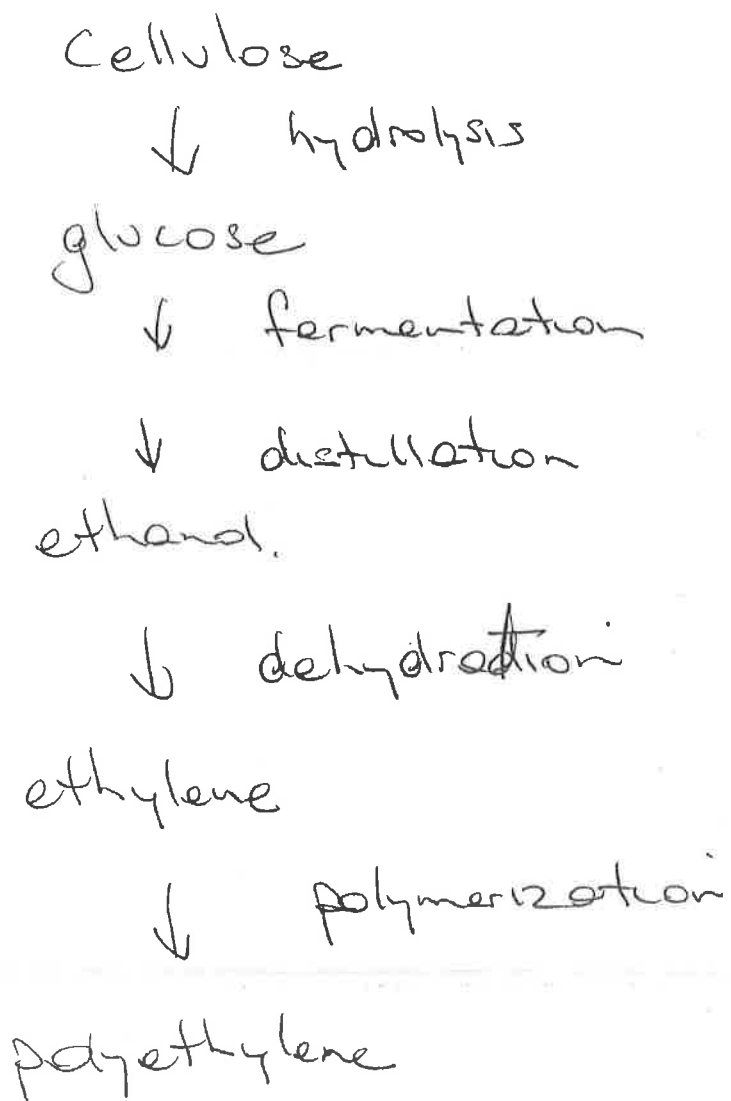 Cellulose
↓ hydrolysis
glucose
↓ fermentation
↓ distillation
ethanol.
↓ dehydration
ethylene
↓ polymerization
polyethylene